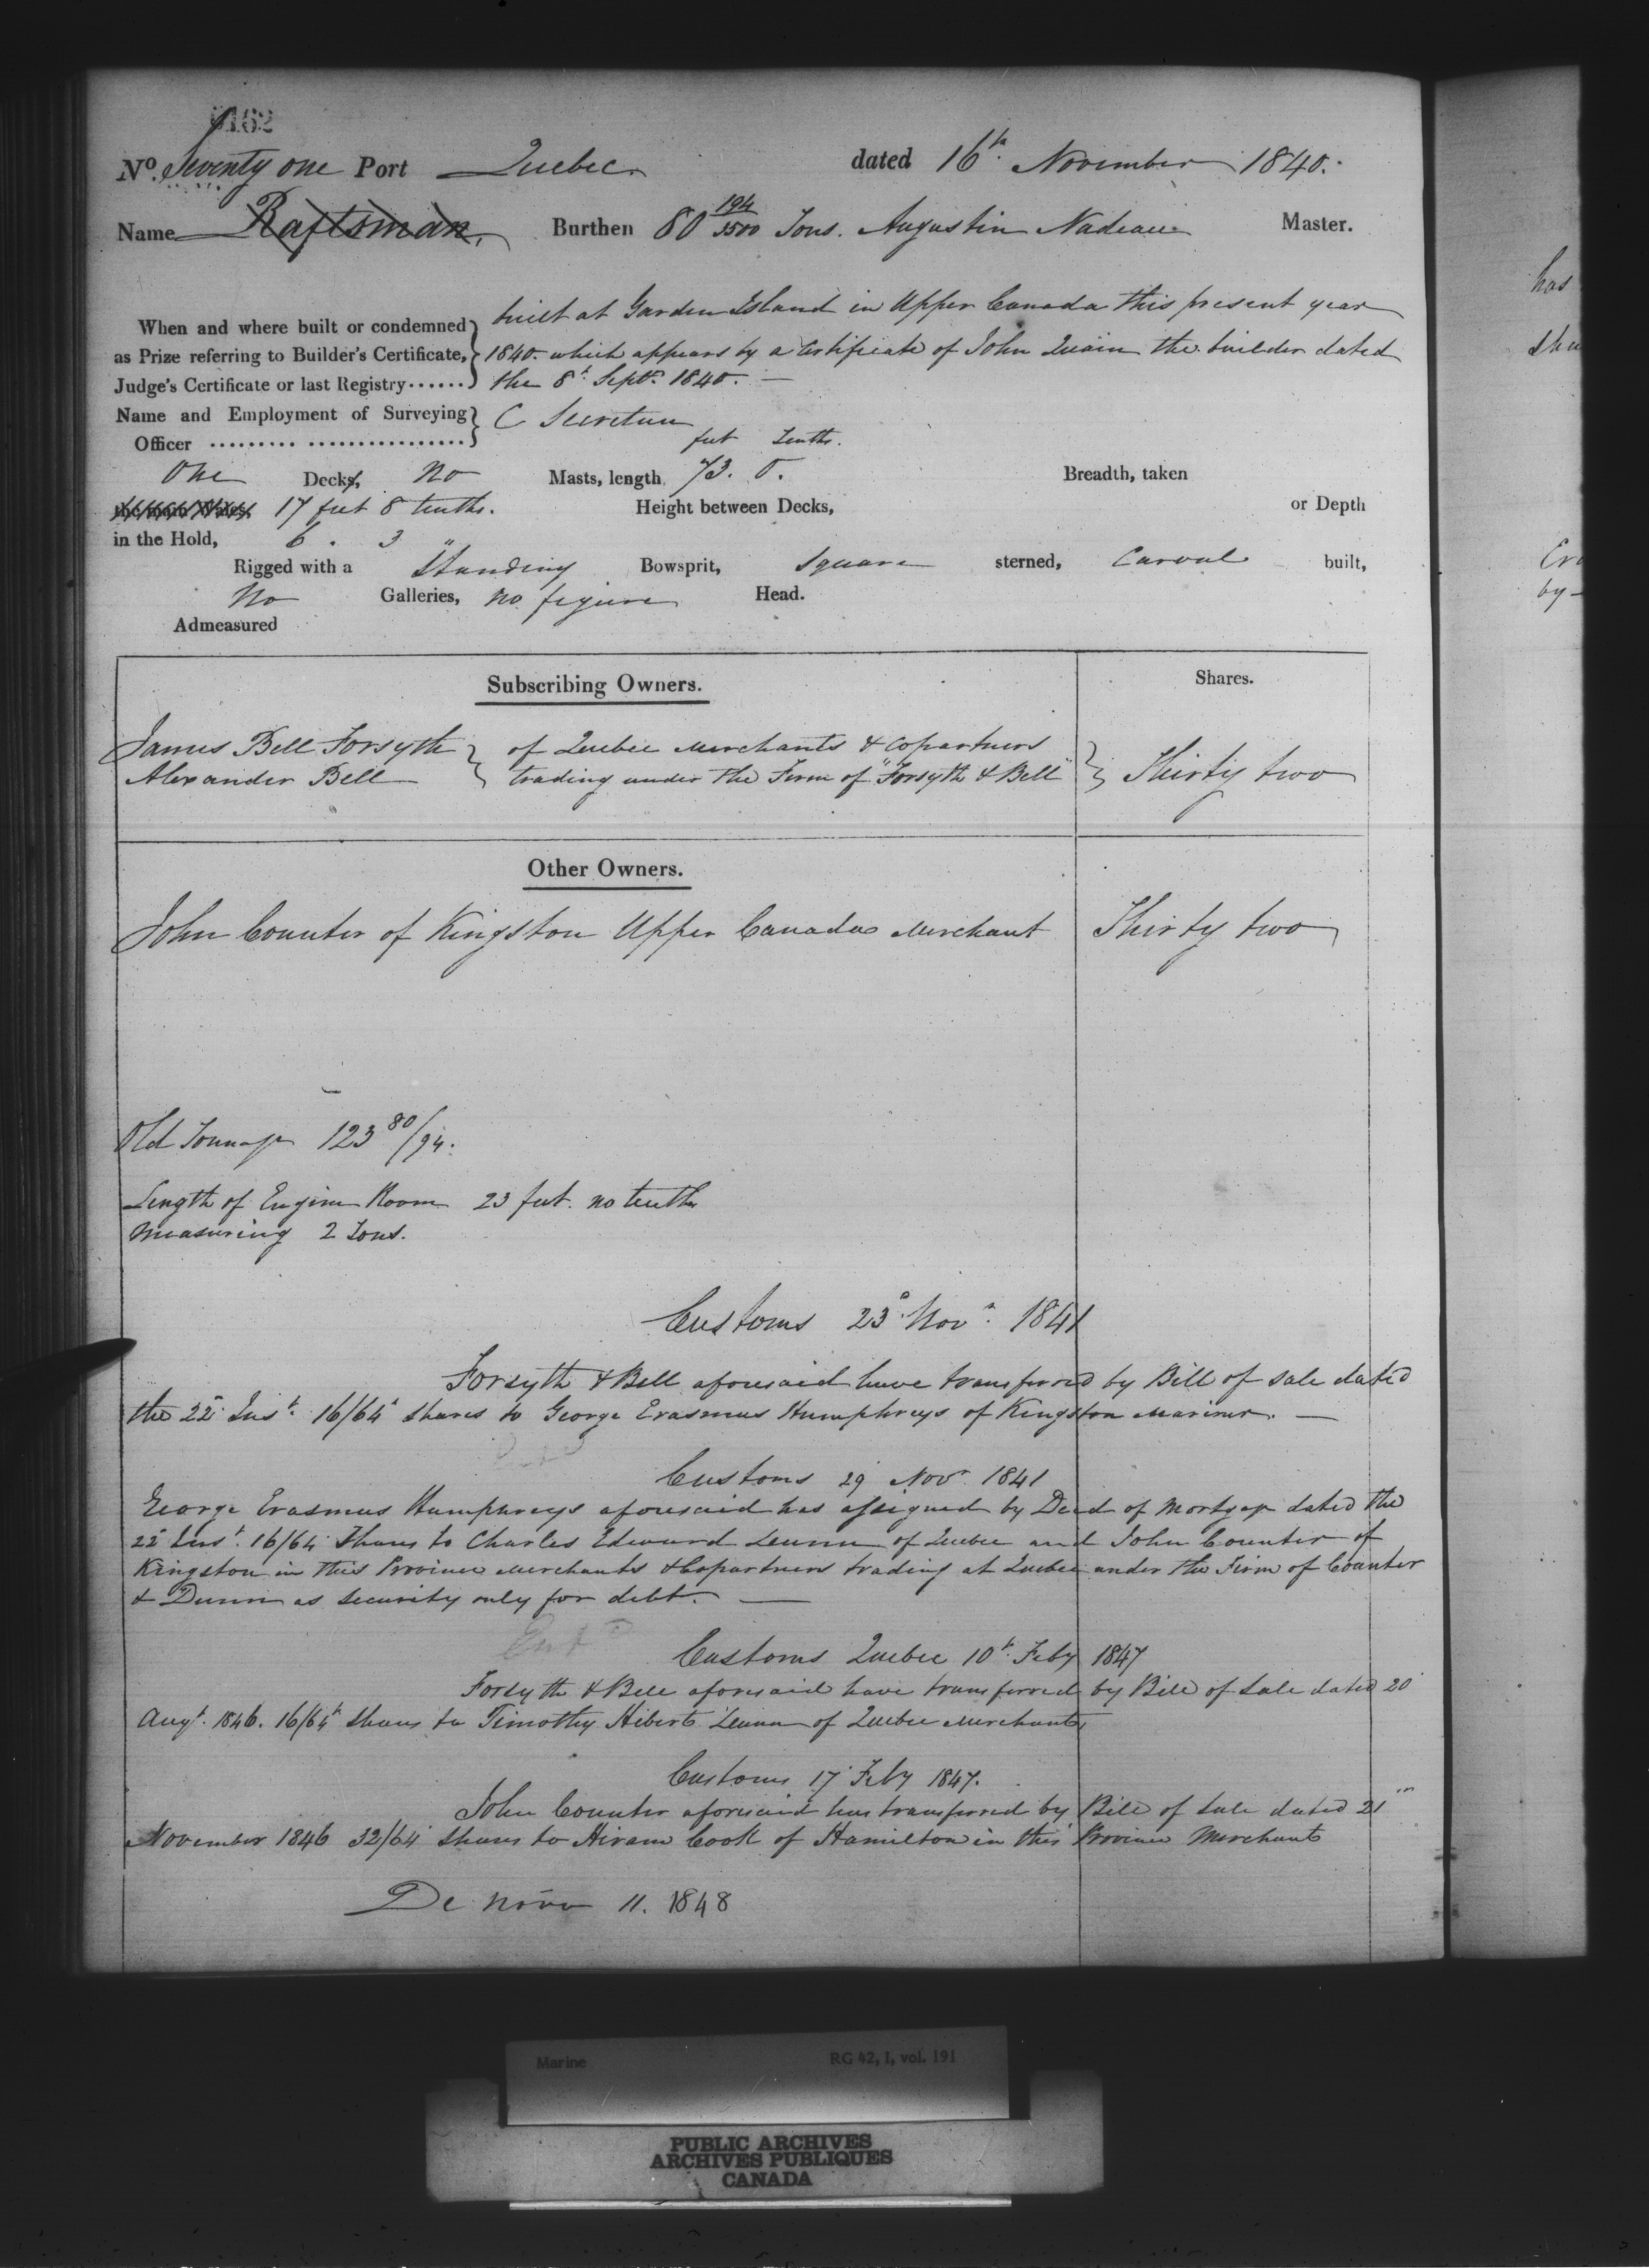 162
No. Seventy one Port Quebec dated 16th November 1840.
Name Raftsman. Burthen 80 194/3500 Tons. Augustin Nadeau Master.
When and where built or condemned as Prize referring to Builder's Certificate, Judge's Certificate or last Registry......
built at Garden Island in Upper Canada this present year
1840. which appears by a Certificate of John Quain the builder dated
the 8th Septr. 1840. —
Name and Employment of Surveying Officer
C Secretan
feet Tenths.
One Decks, No Masts, length 73. 0. Breadth, taken
17 feet 8 tenths. Height between Decks, or Depth
in the Hold, 6 . 3
Rigged with a Standing Bowsprit, Square sterned, Carvel built,
No Galleries, no figure Head.
Admeasured
Subscribing Owners. Shares.
James Bell Forsyth } of Quebec Merchants & Copartners
Alexander Bell } trading under the Firm of "Forsyth & Bell" } Thirty two
Other Owners.
John Counter of Kingston Upper Canada Merchant Thirty two
Old Tonnage 123 80/94.
Length of Engine Room 23 feet. no tenths
measuring 2 Tons.
Customs 23d Novr. 1841
Forsyth & Bell aforesaid have transferred by Bill of Sale dated
the 22d Inst. 16/64th Shares to George Erasmus Humphreys of Kingston Mariner. —
Customs 29 Novr 1841
George Erasmus Humphreys aforesaid has assigned by Deed of Mortgage dated the
22d Inst. 16/64 Shares to Charles Edward Dunn of Quebec and John Counter of
Kingston in this Province Merchants & Copartners trading at Quebec under the Firm of Counter
& Dunn as security only for debt. —
Entd
Customs Quebec 10th Feby 1847
Forsyth & Bell aforesaid have transferred by Bill of Sale dated 20
Augt. 1846. 16/64th Shares to Timothy Hibert Dunn of Quebec Merchant
Customs 17 Feby 1847.
John Counter aforesaid has transferred by Bill of Sale dated 21
November 1846 32/64 Shares to Hiram Cook of Hamilton in this Province Merchant
De novo 11. 1848
has
by
Marine RG 42, I, vol. 191
PUBLIC ARCHIVES
ARCHIVES PUBLIQUES
CANADA